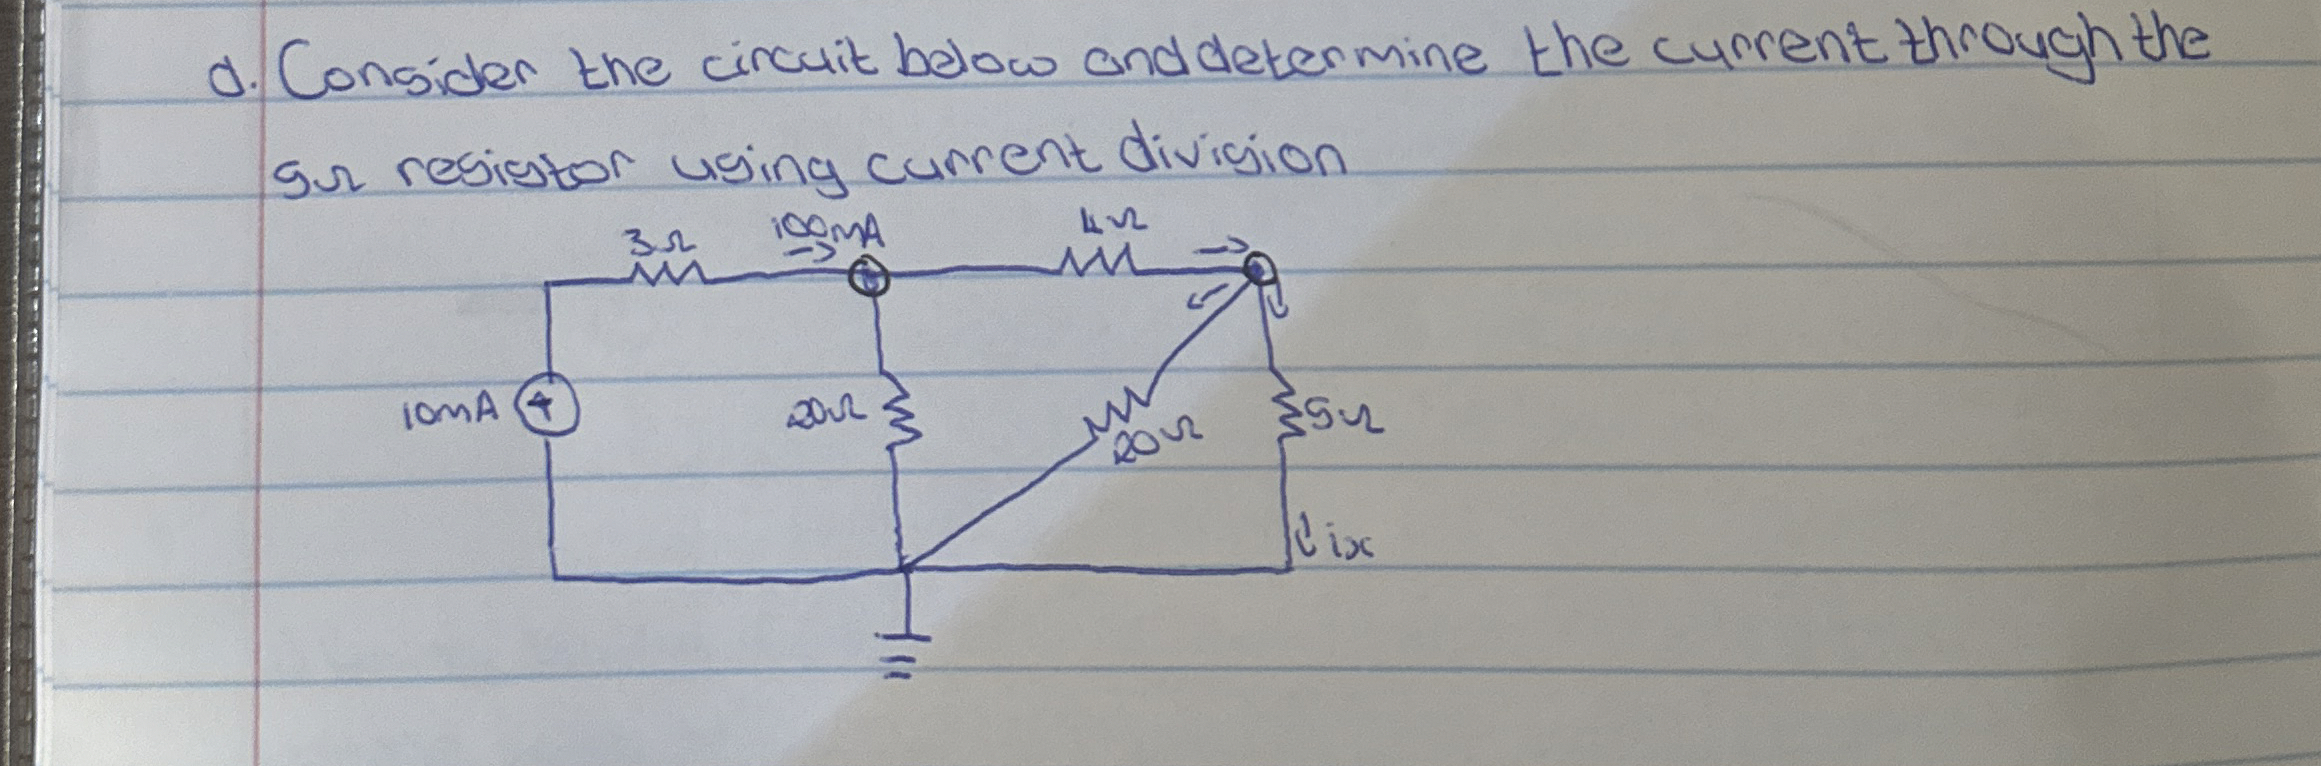 d. Consider the circuit below and determine the current through the
5Ω resistor using current division
3Ω
100mA
4Ω
10mA
20Ω
20Ω
5Ω
ix